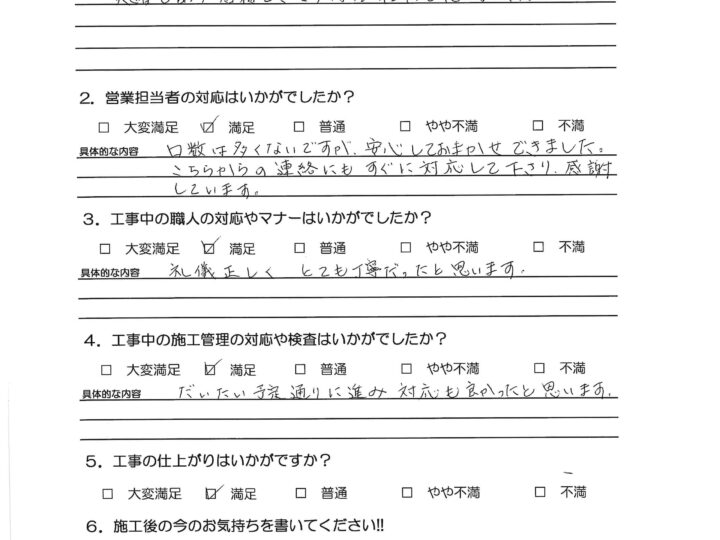 2. 営業担当者の対応はいかがでしたか？
□ 大変満足 ☑ 満足 □ 普通 □ やや不満 □ 不満
具体的な内容 口数は多くないですが、安心しておまかせできました。
こちらからの連絡にもすぐに対応して下さり、感謝
しています。
3. 工事中の職人の対応やマナーはいかがでしたか？
□ 大変満足 ☑ 満足 □ 普通 □ やや不満 □ 不満
具体的な内容 礼儀正しく とても丁寧だったと思います。
4. 工事中の施工管理の対応や検査はいかがでしたか？
□ 大変満足 ☑ 満足 □ 普通 □ やや不満 □ 不満
具体的な内容 だいたい予定通りに進み 対応も良かったと思います。
5. 工事の仕上がりはいかがですか？
□ 大変満足 ☑ 満足 □ 普通 □ やや不満 □ 不満
6. 施工後の今のお気持ちを書いてください!!